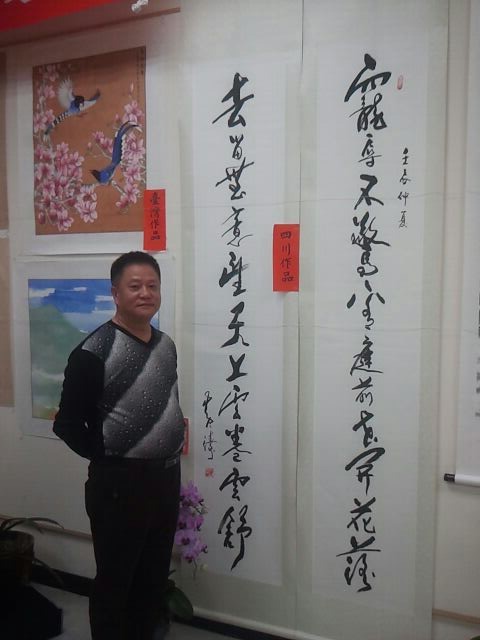 寵辱不驚看庭前花開花落
壬辰仲夏
四川作品
去留無意望天上雲卷雲舒
臺灣作品